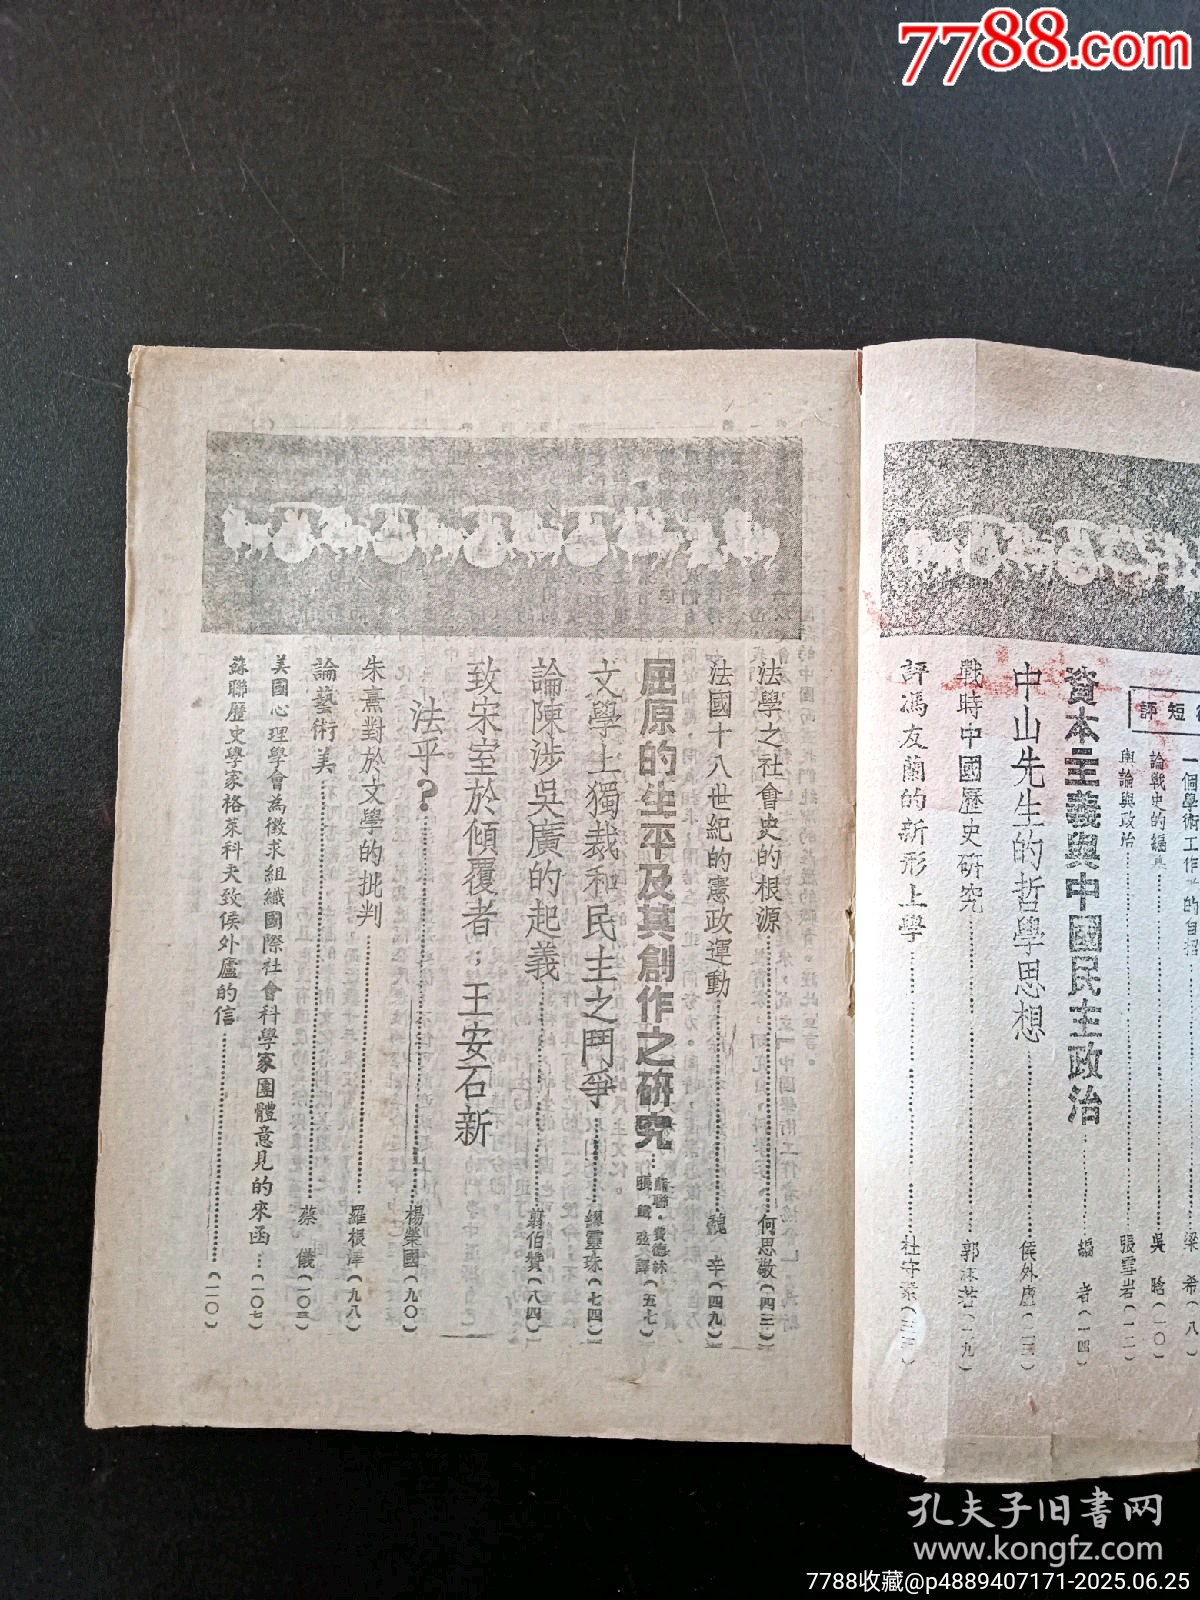 7788.com
短評
一個學術工作
輿論與政治
張雪岩(一二)
資本主義與中國民主政治
編者(一四)
中山先生的哲學思想
侯外廬
戰時中國歷史研究
郭沫若(一九)
評馮友蘭的新形上學
杜守素
法學之社會史的根源
何思敬(四三)
法國十八世紀的憲政運動
魏辛(四九)
屈原的生平及其創作之研究
蘇聯·費德林
譯(五七)
文學上獨裁和民主之鬥爭
繆靈珠(七四)
論陳涉吳廣的起義
翦伯贊(八四)
致宋室於傾覆者:王安石新
法乎?
楊榮國(九〇)
朱熹對於文學的批判
羅根澤(九八)
論藝術美
蔡儀(一〇三)
美國心理學會為徵求組織國際社會科學家團體意見的來函…(一〇七)
蘇聯歷史學家格萊科夫致侯外廬的信
(一一〇)
孔夫子旧書网
www.kongfz.com
7788收藏@p4889407171-2025.06.25